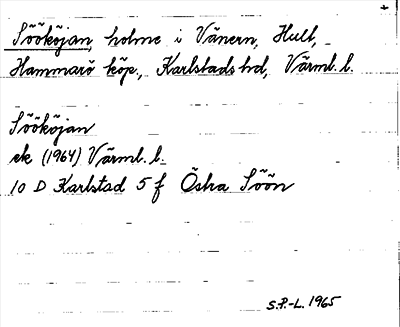 Söököjan, holme i Vänern, Hult,
Hammarö köp., Karlstads hd, Värml. l.
Söököjan
ek (1964) Värml. l.
10 D Karlstad 5 f Östra Söön
S.P.-L. 1965